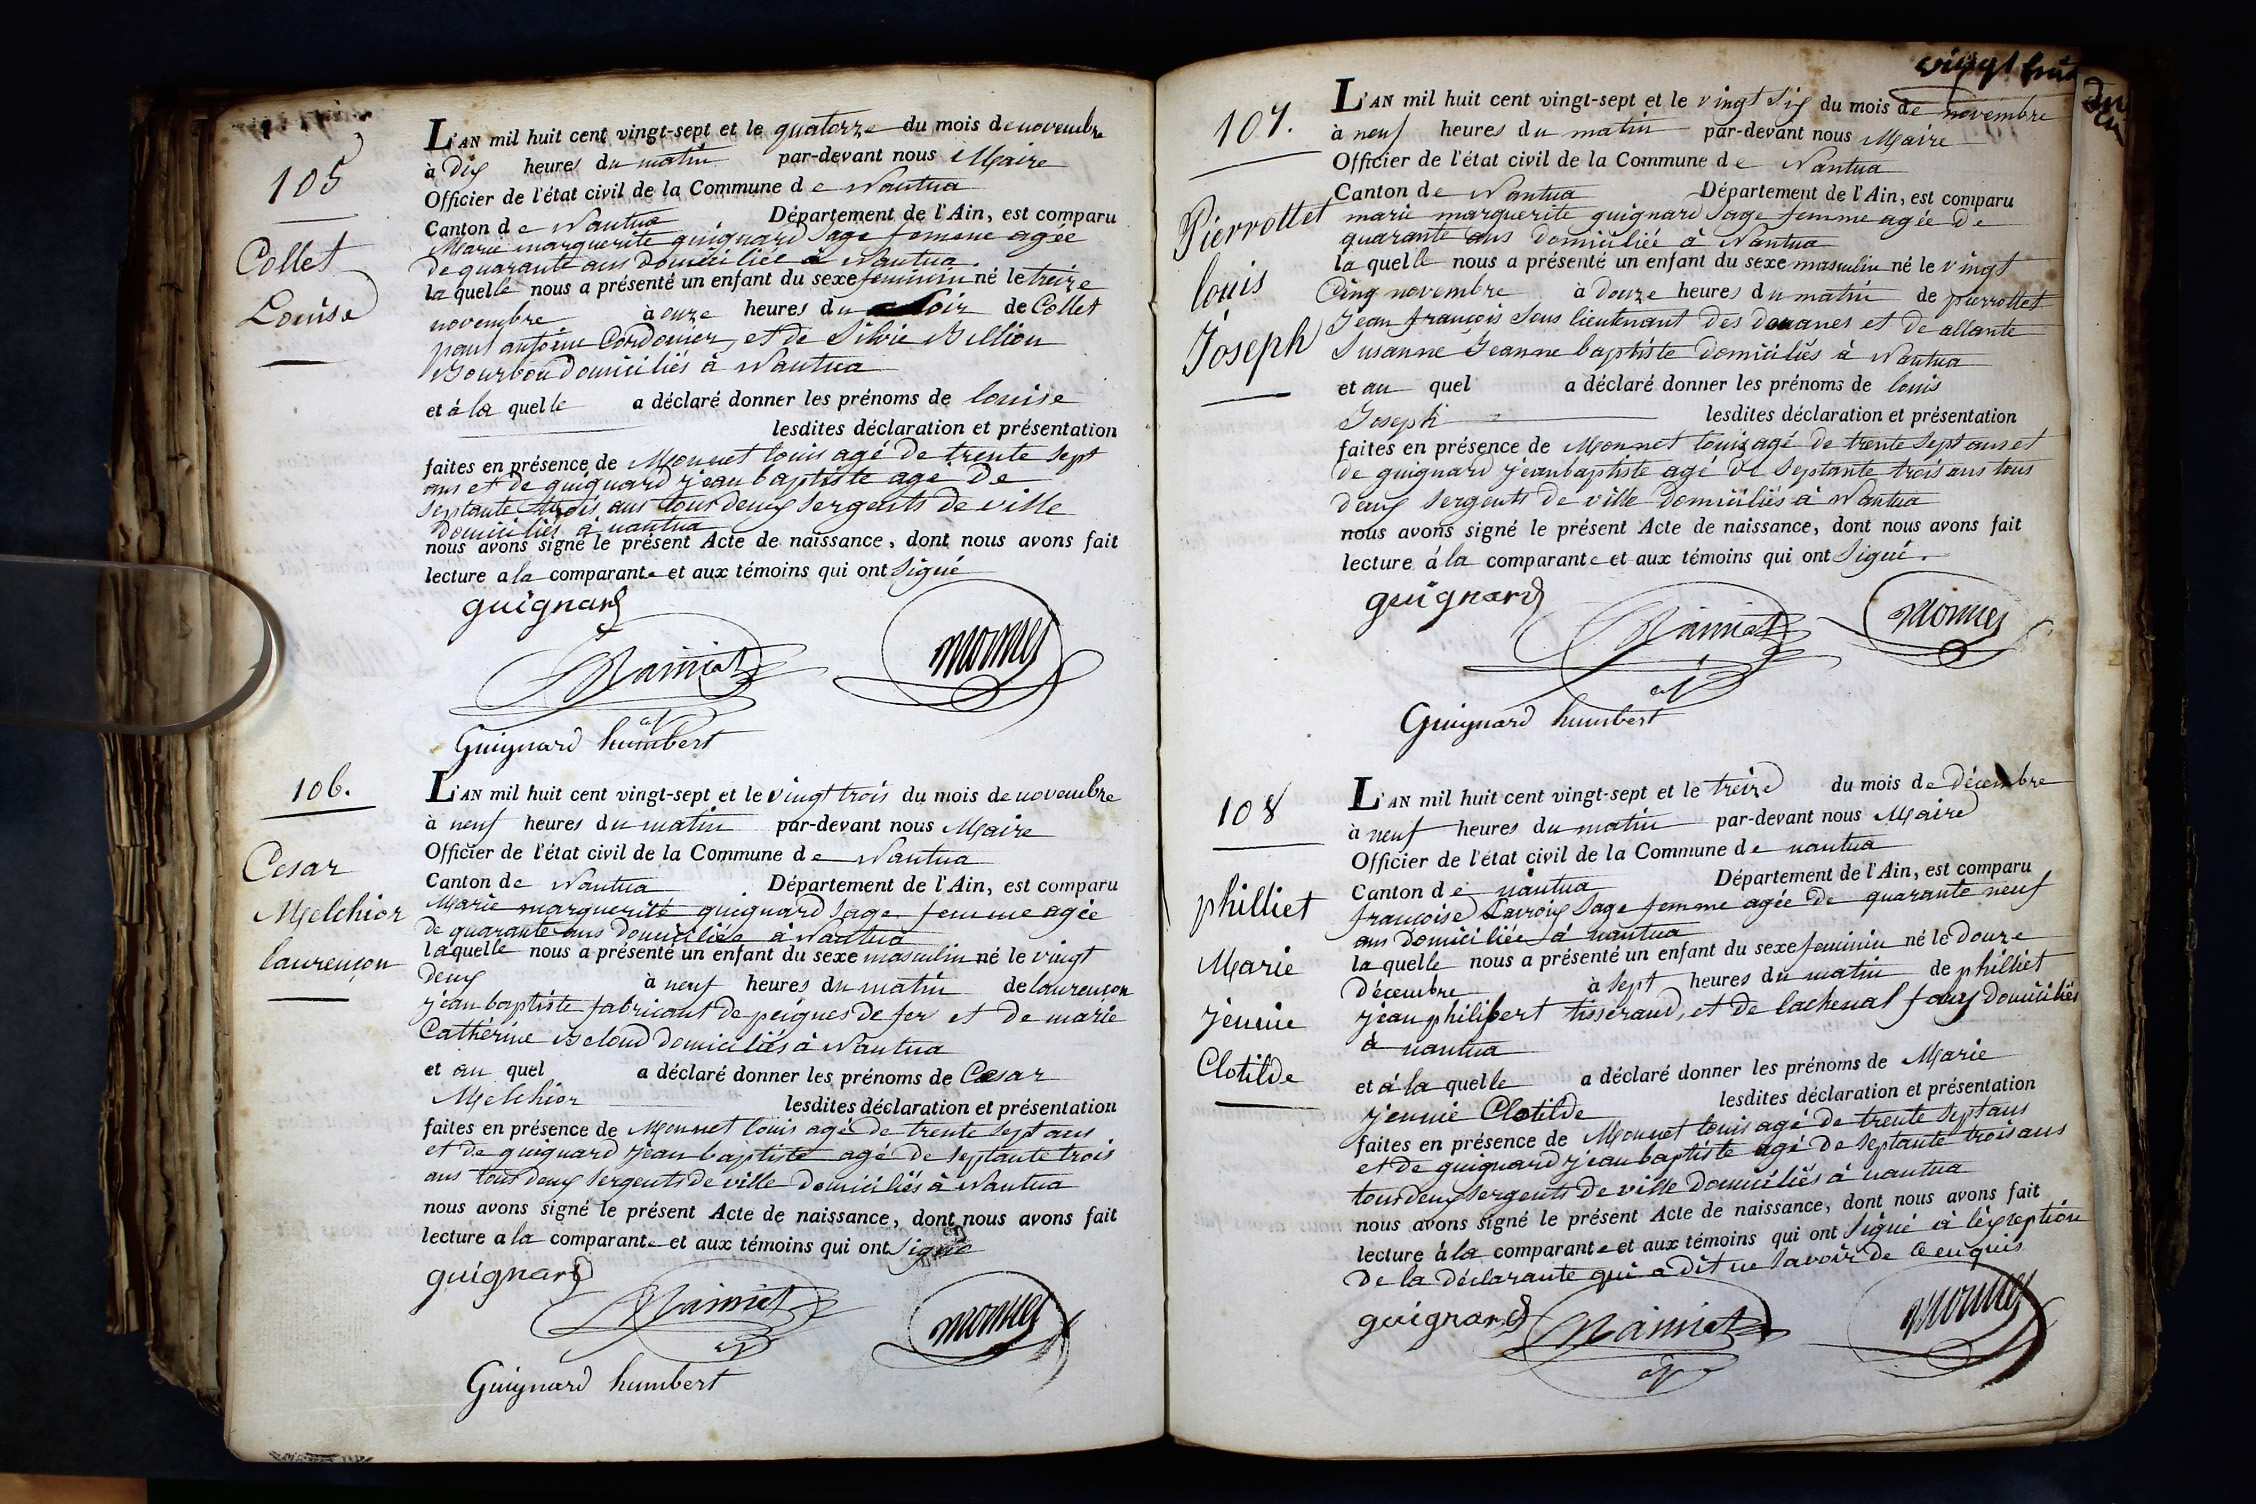 105
Collet
Louise
L'AN mil huit cent vingt-sept et le quatorze du mois de novembre
à dix heures du matin par-devant nous Maire
Officier de l'état civil de la Commune de Nantua
Canton de Nantua Département de l'Ain, est comparu
Marie marguerite guignard sage femme agée
de quarante ans domiciliée à Nantua
la quelle nous a présenté un enfant du sexe feminin né le treize
novembre à onze heures du soir de Collet
paul antoine Cordonier, et de Silvie Billion
Bourbon domiciliés à Nantua
et à la quelle a déclaré donner les prénoms de louise
lesdites déclaration et présentation
faites en présence de Monnet louis agé de trente sept
ans et de guignard jean baptiste agé de
septante trois ans tous deux sergents de ville
domiciliés à nantua
nous avons signé le présent Acte de naissance, dont nous avons fait
lecture a la comparante et aux témoins qui ont signé
guignard
monnet
Guignard humbert
106.
Cesar
Melchior
laurençon
L'AN mil huit cent vingt-sept et le vingt trois du mois de novembre
à neuf heures du matin par-devant nous Maire
Officier de l'état civil de la Commune de Nantua
Canton de Nantua Département de l'Ain, est comparu
Marie marguerite guignard sage femme agée
de quarante ans domiciliée à Nantua
la quelle nous a présenté un enfant du sexe masculin né le vingt
deux à neuf heures du matin de laurençon
jean baptiste fabricant de peignes de fer et de marie
Cathérine Beloud domiciliés à Nantua
et au quel a déclaré donner les prénoms de Cesar
Melchior lesdites déclaration et présentation
faites en présence de Monnet louis agé de trente sept ans
et de guignard jean baptiste agé de septante trois
ans tous deux sergents de ville domiciliés à Nantua
nous avons signé le présent Acte de naissance, dont nous avons fait
lecture a la comparante et aux témoins qui ont signé
guignard
monnet
Guignard humbert
107.
Pierrottet
louis
Joseph
L'AN mil huit cent vingt-sept et le vingt six du mois de novembre
à neuf heures du matin par-devant nous Maire
Officier de l'état civil de la Commune de Nantua
Canton de Nantua Département de l'Ain, est comparu
marie marguerite guignard sage femme agée de
quarante ans domiciliée à Nantua
la quelle nous a présenté un enfant du sexe masculin né le vingt
Cinq novembre à douze heures du matin de pierrottet
Jean françois sous lieutenant des douanes et de allante
Susanne Jeanne baptiste domiciliés à Nantua
et au quel a déclaré donner les prénoms de louis
Joseph lesdites déclaration et présentation
faites en présence de Monnet louis agé de trente sept ans et
de guignard jean baptiste agé de septante trois ans tous
deux sergents de ville domiciliés à Nantua
nous avons signé le présent Acte de naissance, dont nous avons fait
lecture à la comparante et aux témoins qui ont signé.
guignard
monnet
Guignard humbert
108
philliet
Marie
jennie
Clotilde
L'AN mil huit cent vingt-sept et le treize du mois de décembre
à neuf heures du matin par-devant nous Maire
Officier de l'état civil de la Commune de nantua
Canton de nantua Département de l'Ain, est comparu
françoise Lavroix sage femme agée de quarante neuf
ans domiciliée à nantua
la quelle nous a présenté un enfant du sexe feminin né le douze
décembre à sept heures du matin de philliet
jean philibert tisserand, et de lachenal fany domiciliés
à nantua
et à la quelle a déclaré donner les prénoms de Marie
jennie Clotilde lesdites déclaration et présentation
faites en présence de Monnet louis agé de trente sept ans
et de guignard jean baptiste agé de septante trois ans
tous deux sergents de ville domiciliés à nantua
nous avons signé le présent Acte de naissance, dont nous avons fait
lecture à la comparante et aux témoins qui ont signé à l'exeption
de la déclarante qui a dit ne savoir de ce enquis
guignard
monnet